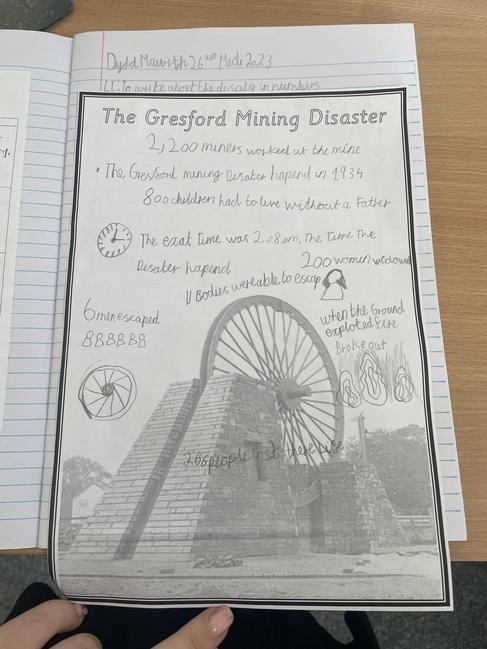 Dydd Mawrth 26ain Medi 2023
LI: To write about the disaster in numbers
The Gresford Mining Disaster
2,200 miners worked at the mine
• The Gresford mining Disater hapend in 1934
800 children had to live without a Father
The exat time was 2.08am, The Time The
Disater hapend
200 women widowed
11 Bodies were able to escap
6 men escaped
when the Ground
exploted fire
Broke out
266 people lost there life